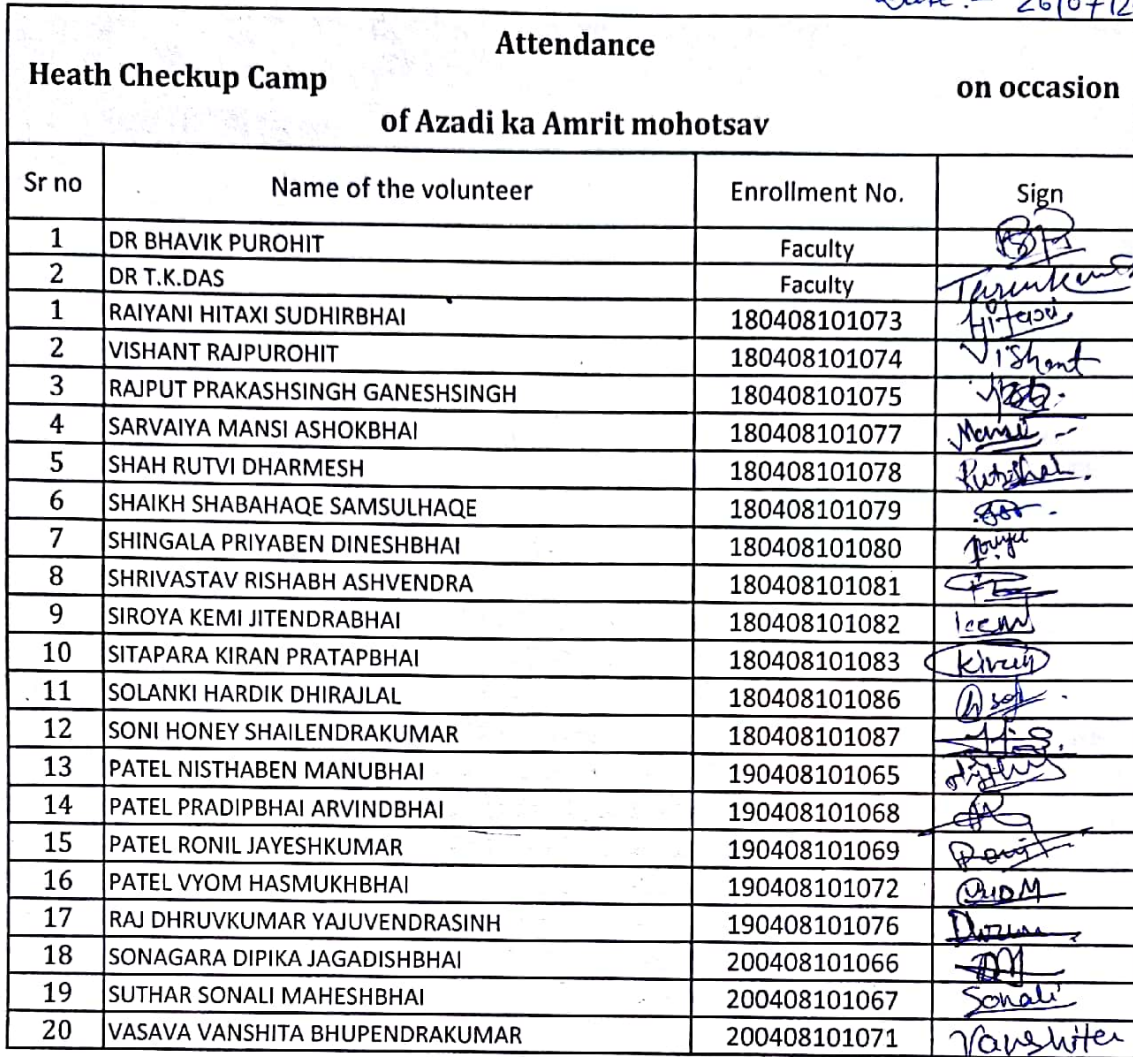 Date :- 26/07/2
Attendance
Heath Checkup Camp on occasion
of Azadi ka Amrit mohotsav
Sr no Name of the volunteer Enrollment No. Sign
1 DR BHAVIK PUROHIT Faculty
2 DR T.K.DAS Faculty
1 RAIYANI HITAXI SUDHIRBHAI 180408101073 Hitaxi
2 VISHANT RAJPUROHIT 180408101074 Vishant
3 RAJPUT PRAKASHSINGH GANESHSINGH 180408101075
4 SARVAIYA MANSI ASHOKBHAI 180408101077 Mansi
5 SHAH RUTVI DHARMESH 180408101078
6 SHAIKH SHABAHAQE SAMSULHAQE 180408101079
7 SHINGALA PRIYABEN DINESHBHAI 180408101080
8 SHRIVASTAV RISHABH ASHVENDRA 180408101081
9 SIROYA KEMI JITENDRABHAI 180408101082
10 SITAPARA KIRAN PRATAPBHAI 180408101083 Kiran
11 SOLANKI HARDIK DHIRAJLAL 180408101086
12 SONI HONEY SHAILENDRAKUMAR 180408101087
13 PATEL NISTHABEN MANUBHAI 190408101065
14 PATEL PRADIPBHAI ARVINDBHAI 190408101068
15 PATEL RONIL JAYESHKUMAR 190408101069
16 PATEL VYOM HASMUKHBHAI 190408101072
17 RAJ DHRUVKUMAR YAJUVENDRASINH 190408101076
18 SONAGARA DIPIKA JAGADISHBHAI 200408101066
19 SUTHAR SONALI MAHESHBHAI 200408101067 Sonali
20 VASAVA VANSHITA BHUPENDRAKUMAR 200408101071 Vanshita